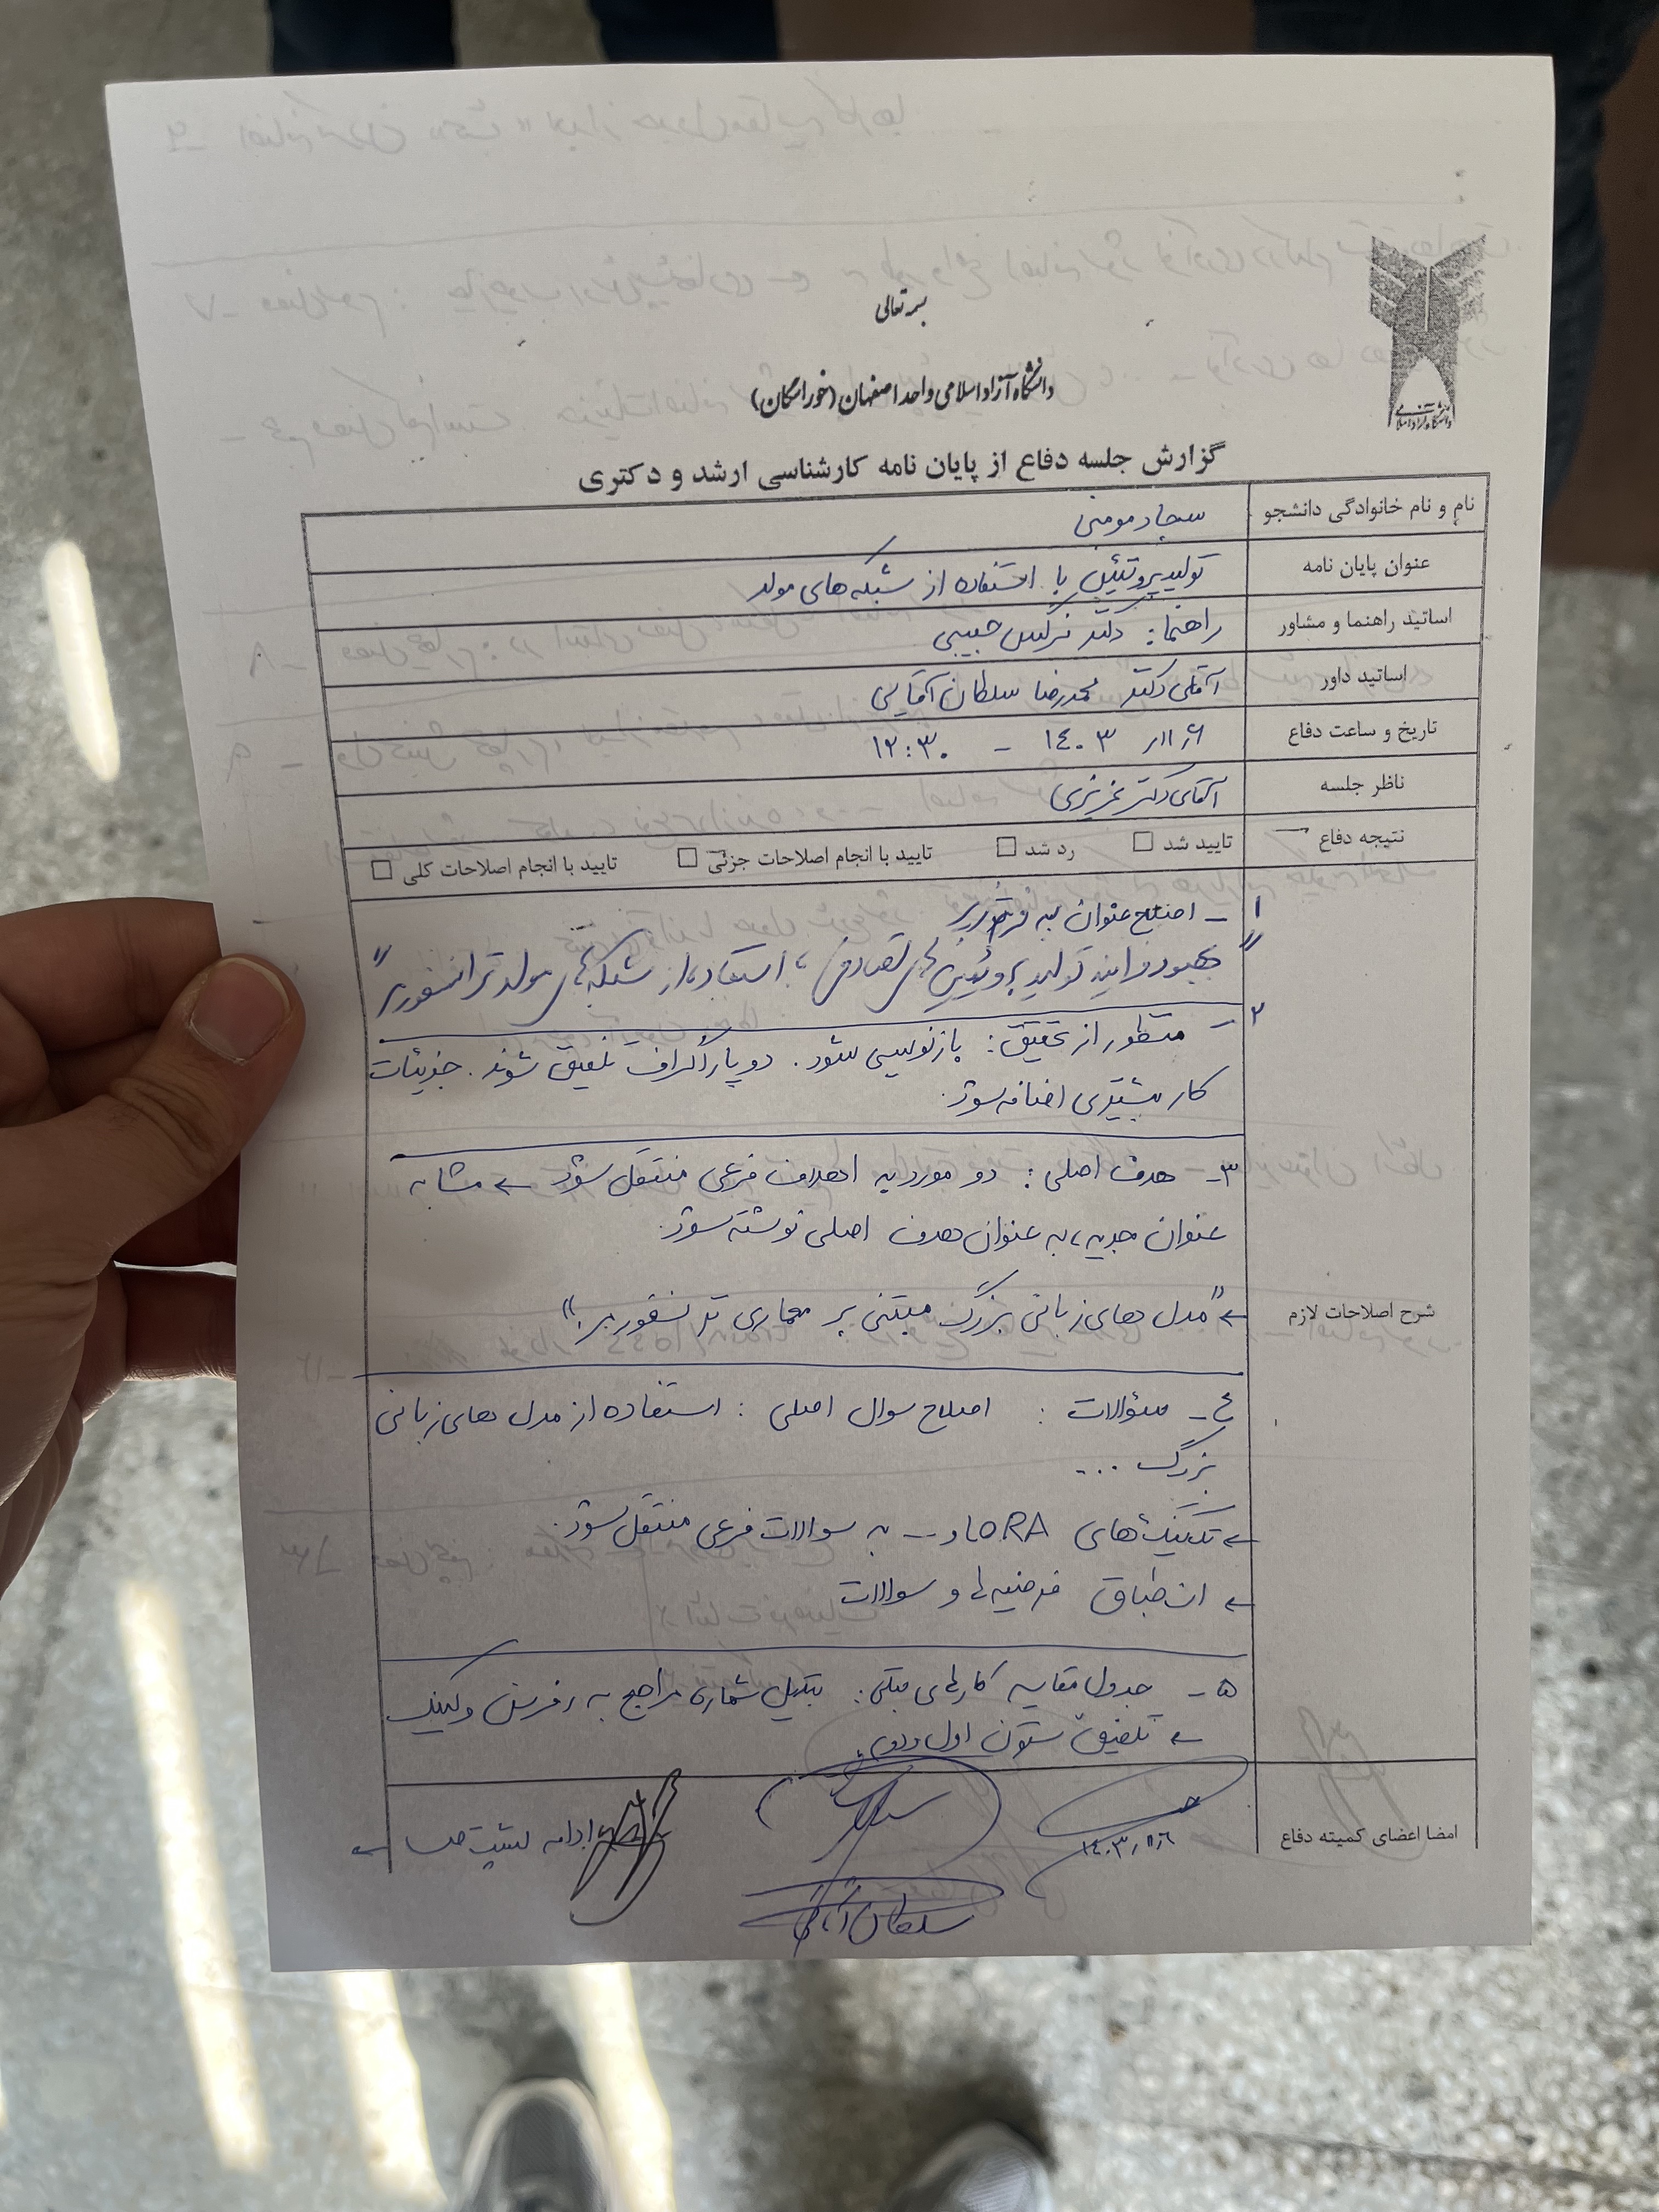 بسمه تعالی
دانشگاه آزاد اسلامی واحد اصفهان (خوراسگان)
دانشگاه آزاد اسلامی
گزارش جلسه دفاع از پایان نامه کارشناسی ارشد و دکتری
نام و نام خانوادگی دانشجو سجاد مومنی
عنوان پایان نامه تولید پروتئین با استفاده از شبکه های مولد
اساتید راهنما و مشاور راهنما: دکتر نرگس حبیبی
اساتید داور آقای دکتر محمدرضا سلطان آقایی
تاریخ و ساعت دفاع ۱۴۰۳/۱۱/۶ - ۱۲:۳۰
ناظر جلسه آقای دکتر عزیزی
نتیجه دفاع تایید شد رد شد تایید با انجام اصلاحات جزئی تایید با انجام اصلاحات کلی
شرح اصلاحات لازم
۱- اصلاح عنوان به
"بهبود فرایند تولید پروتئین های تصادفی با استفاده از شبکه های مولد ترانسفورمر"
۲- منظور از تحقیق: بازنویسی شود. دو پاراگراف تلفیق شوند. جزئیات
کار بیشتری اضافه شود.
۳- هدف اصلی: دو مورد به اهداف فرعی منتقل شود ← مشابه
عنوان جدید، به عنوان هدف اصلی نوشته شود.
← "مدل های زبانی بزرگ مبتنی بر معماری ترنسفورمر"
۴- سئوالات: اصلاح سوال اصلی: استفاده از مدل های زبانی
بزرگ ...
← تکنیک های LORA و ... به سوالات فرعی منتقل شود.
← انطباق فرضیه ها و سوالات
۵- جدول مقایسه کارهای قبلی: تبدیل شماره مراجع به رفرنس و لینک
← تلفیق ستون اول و دوم
امضا اعضای کمیته دفاع
۱۴۰۳/۱۱/۶
سلطان آقایی
ادامه پشت صفحه ←